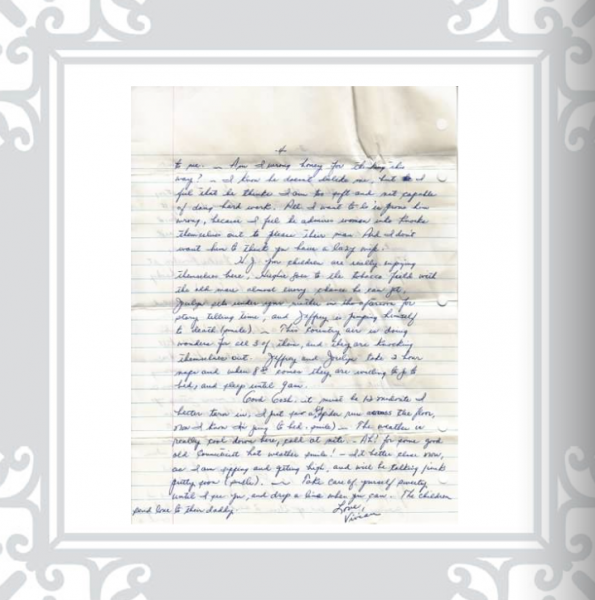 4
to me. — Am I wrong honey for thinking this
way? — I know he doesn't dislike me, but I
feel that he thinks I am too soft and not capable
of doing hard work. All I want to do is prove him
wrong, because I feel he admires women who knocks
themselves out to please their man. And I don't
want him to think you have a lazy wife.
H.J. your children are really enjoying
themselves here, goes to the tobacco field with
the old man almost every chance he can get,
sits under your mother in the afternoon for
story telling time, and Jeffrey is jumping himself
to death (smile). — This country air is doing
wonders for all 3 of them, and they are knocking
themselves out. Jeffrey and take 2 hour
naps and when 8 comes they are willing to go to
bed, and sleep until 9am.
Good Gosh, it must be 12 midnite I
better turn in, I just saw a spider run across the floor,
now I know I'm going to bed. (smile) — The weather is
really cool down here, cold at nite. — Ah! for some good
old Connecticut hot weather smile! — I'd better close now,
as I am and getting high, and will be talking junk
pretty soon (smile). — Take care of yourself sweety
until I see you, and drop a line when you can. The children
send love to their daddy.
Love,
Vivian